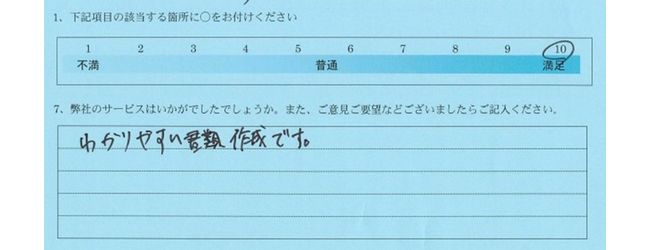 1、下記項目の該当する箇所に○をお付けください
1 2 3 4 5 6 7 8 9 10
不満 普通 満足
7、弊社のサービスはいかがでしたでしょうか。また、ご意見ご要望などございましたらご記入ください。
わかりやすい書類作成です。